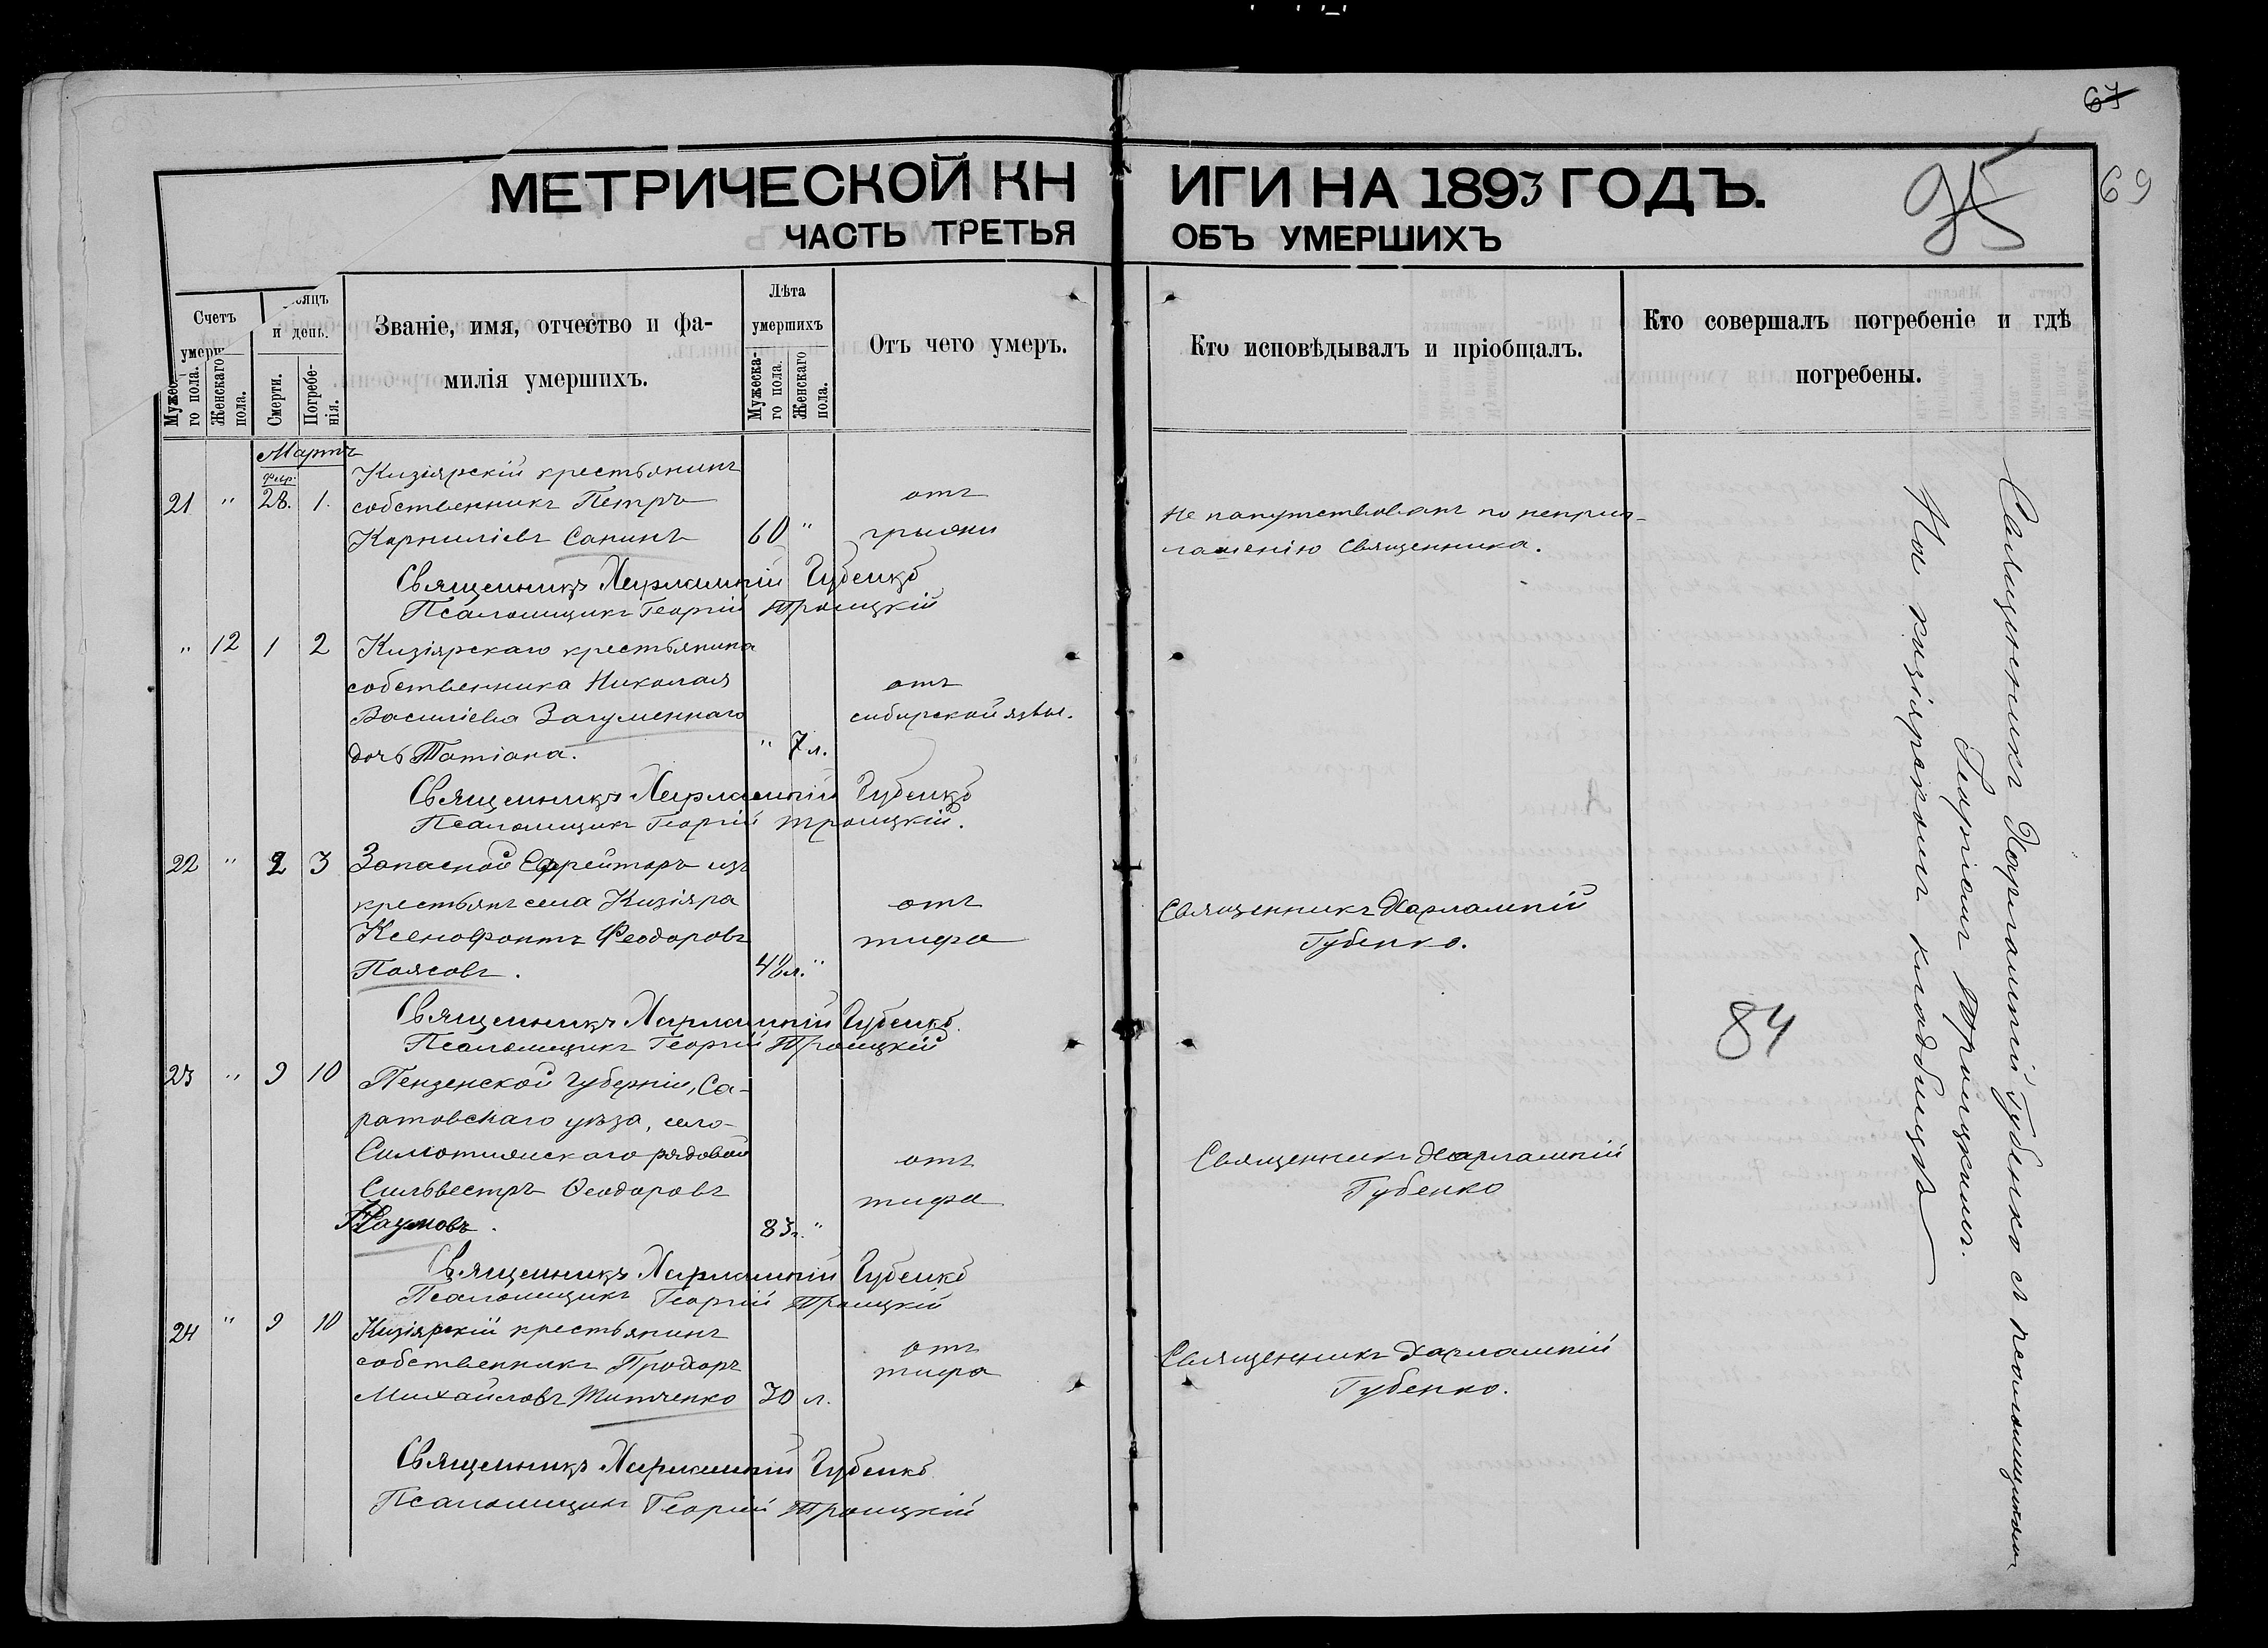 67
69
95
МЕТРИЧЕСКОЙ КНИГИ НА 1893 ГОДЪ.
ЧАСТЬ ТРЕТЬЯ ОБЪ УМЕРШИХЪ
Счетъ
умерш
Мужес го пола.
Женскаго пола.
сяцъ
и день.
Смерти.
Погребе-нія.
Званіе, имя, отчество и фа-
милія умершихъ.
Лѣта
умершихъ
Мужеска-го пола.
Женскаго пола.
Отъ чего умеръ.
Кто исповѣдывалъ и пріобщалъ.
Кто совершалъ погребеніе и гдѣ
погребены.
Мартъ
Февр.
21 " 28. 1.
Кизіярскій крестьянинъ
собственникъ Петръ
Корниліевъ Санинъ
60 "
отъ
грыжи
Не напутствованъ по непригла-
шенію Священника.
Священникъ Харлампій Губенко
Псаломщикъ Георгій Троицкій
" 12 1 2
Кизіярскаго крестьянина
собственника Николая
Василіева Загуменнаго
дочь Татіана.
" 7 л.
отъ
сибирской язвы.
Священникъ Харлампій Губенко
Псаломщикъ Георгій Троицкій.
22 " 2 3
Запасной Ефрейторъ изъ
крестьянъ села Кизіяра
Ксенофонтъ Феодоровъ
Поясовъ.
л. "
отъ
тифа
Священникъ Харлампій
Губенко.
Священникъ Харлампій Губенко.
Псаломщикъ Георгій Троицкій
84
23 " 9 10
Пензенской Губерніи, Са-
ратовскаго уѣзда, село-
рядовой
Сильвестръ Ѳеодоровъ
Наумовъ.
83 г. "
отъ
тифа
Священникъ Харлампій
Губенко
Священникъ Харлампій Губенко
Псаломщикъ Георгій Троицкій
24 " 9 10
Кизіярскій крестьянинъ
собственникъ Прохоръ
Михайловъ Титченко
70 л.
отъ
тифа
Священникъ Харлампій
Губенко.
Священникъ Харлампій Губенко
Псаломщикъ Георгій Троицкій
Священникъ Харлампій Губенко съ псаломщикомъ
Георгіемъ Троицкимъ.
На кизіярскомъ кладбищѣ